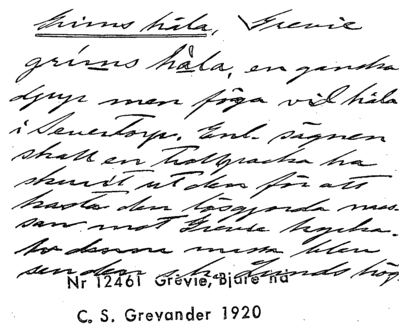 Grims håla, Grevie
grims håla, en ganska
djup men föga vid håla
i Seventorp. Enl. sägnen
skall en trollpacka ha
skurit ut den för att
kasta den lösgjorda mas-
san mot Grevie kyrka.
Av denna massa blev
sen den s.k. Grinds hög
Nr 12461 Grevie, Bjäre hd
C. S. Grevander 1920